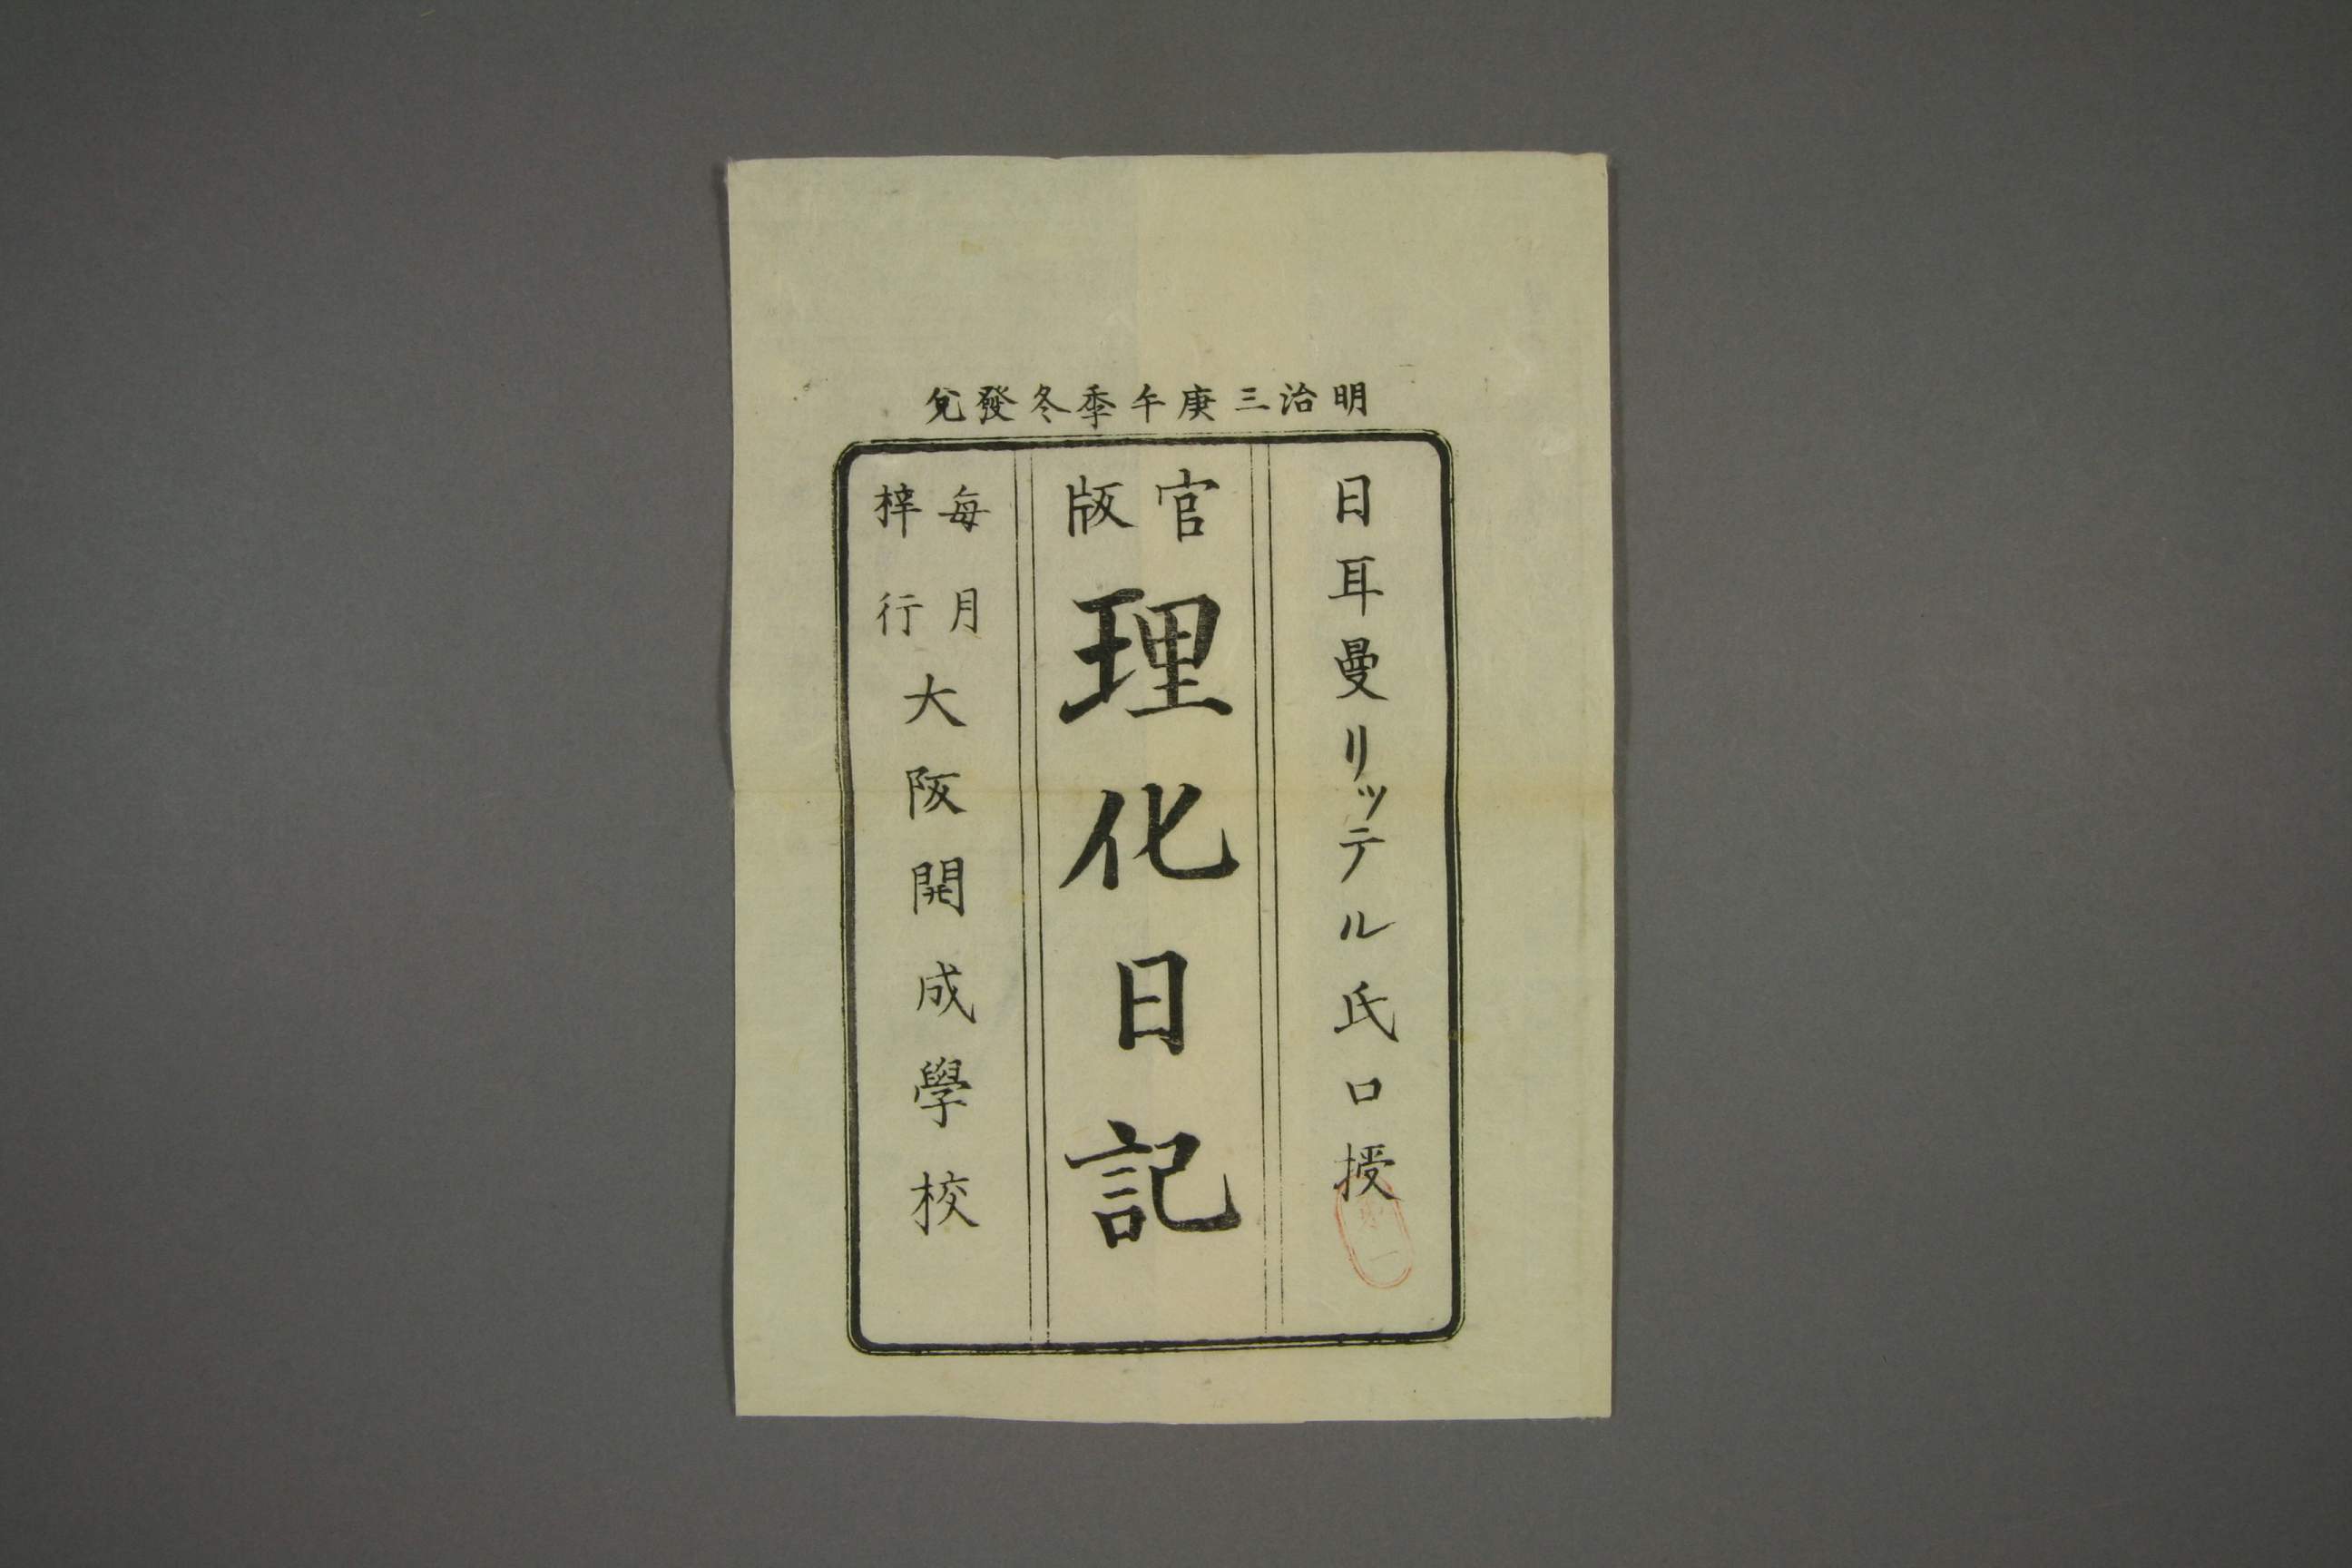 明治三庚午季冬發兌
日耳曼リッテル氏口授
官版
理化日記
毎月
梓行
大阪開成學校